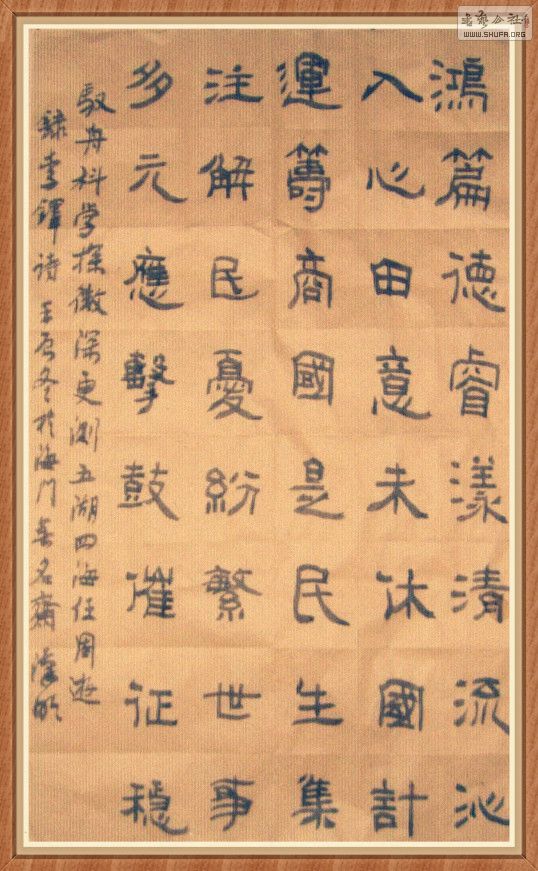 鴻篇德睿漾清流沁
入心田意未休國計
運籌商國是民生集
注解民憂紛繁世事
多元應擊鼓催征穩
馭舟科学探微深更测五湖四海任周遊
録李鐸诗 壬辰冬於海门無名齋
書藝公社
WWW.SHUFA.ORG